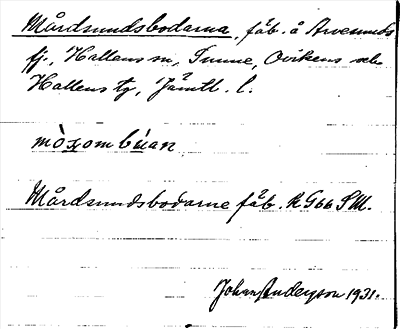 Mårdsundsbodarna, fäb. å Arvesunds
fj., Hallens sn, Sunne, Ovikens och
Hallens tg, Jämtl. l.
mòʂombúan
Mårdsundsbodarne fäb. K G66 SM.
Johan Anderson 1931.